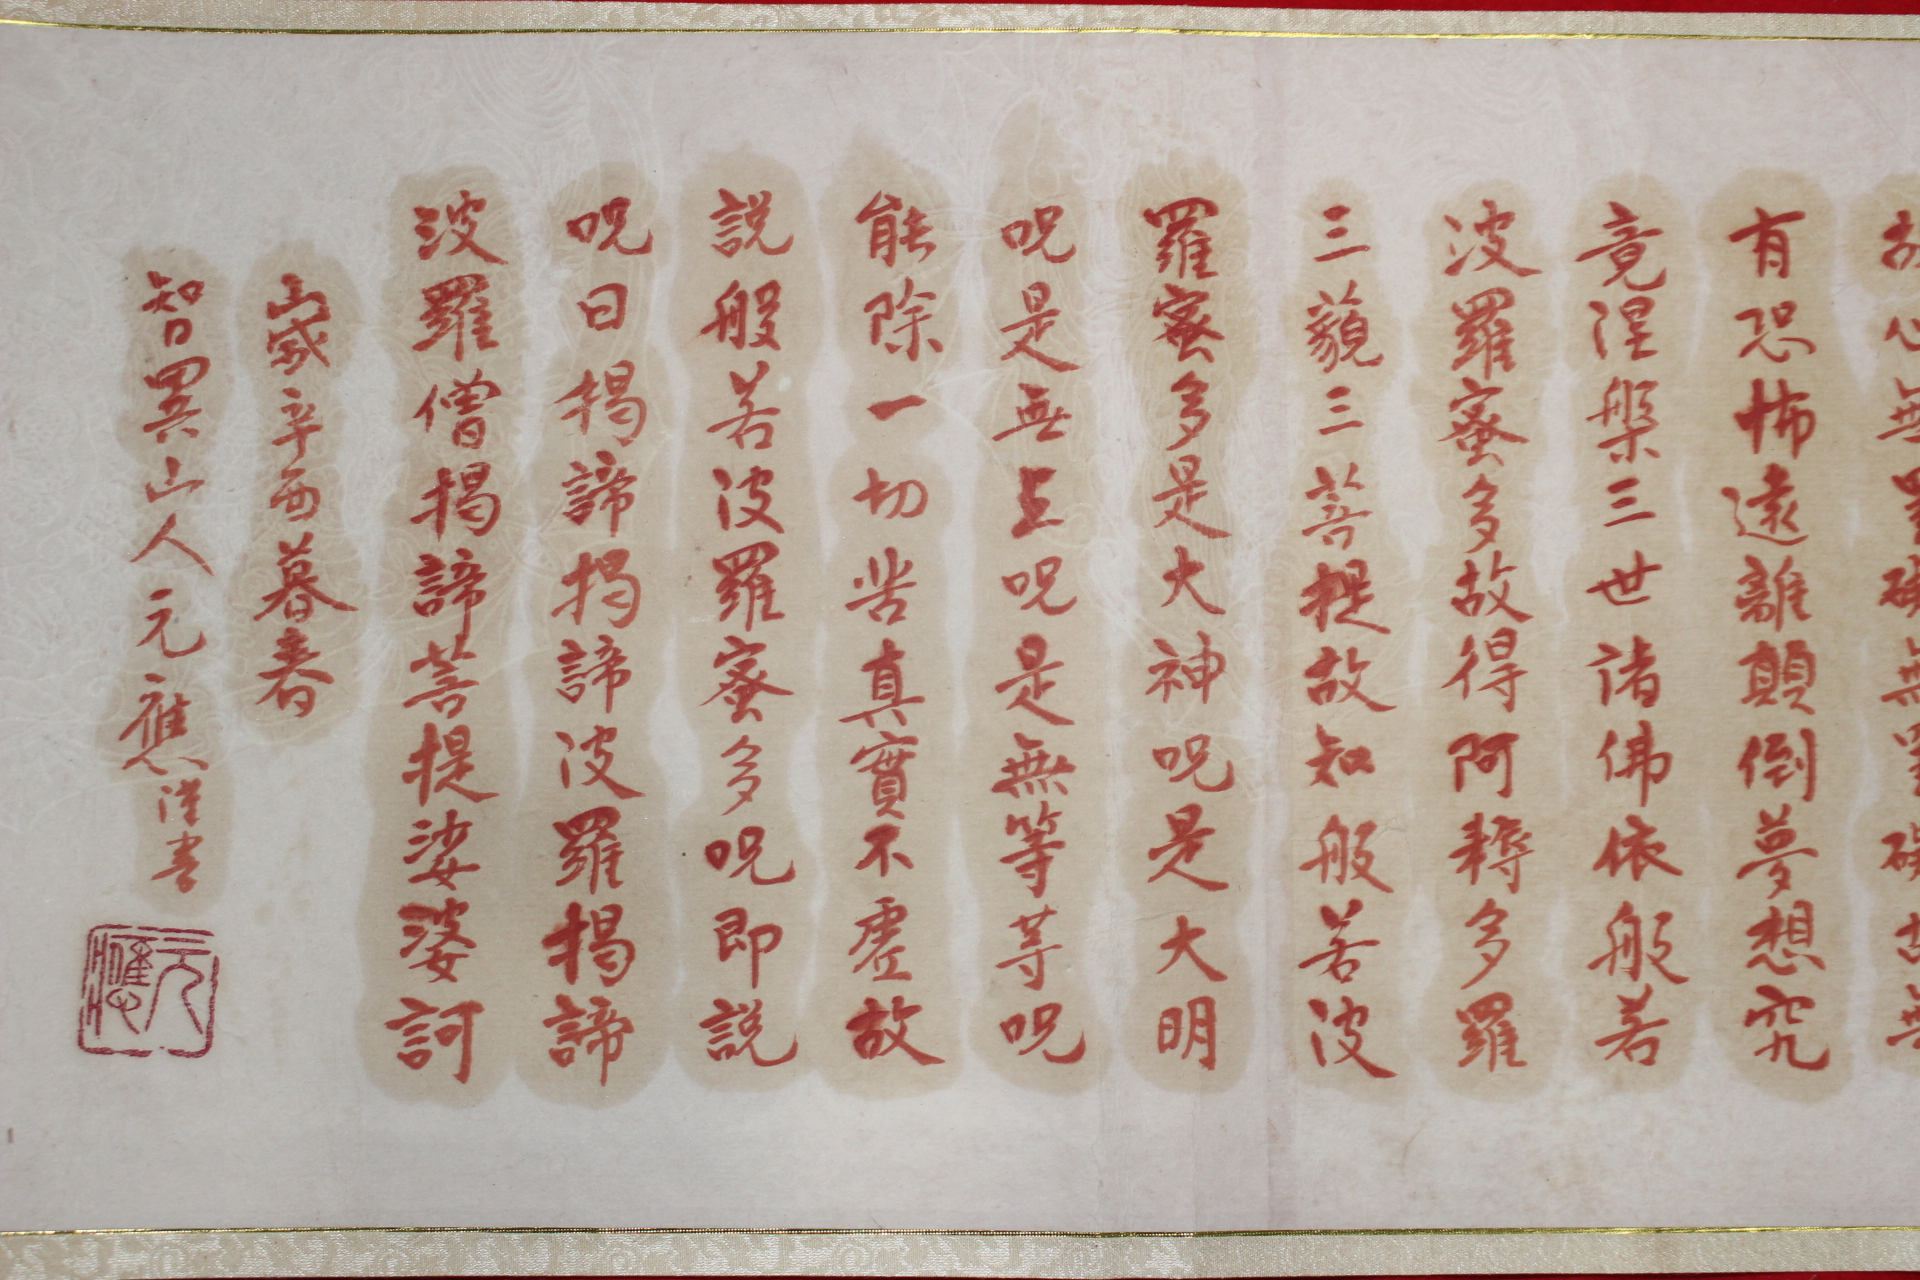 故心無罣礙無罣礙故無
有恐怖遠離顛倒夢想究
竟涅槃三世諸佛依般若
波羅蜜多故得阿耨多羅
三藐三菩提故知般若波
羅蜜多是大神呪是大明
呪是無上呪是無等等呪
能除一切苦真實不虛故
説般若波羅蜜多呪即説
呪曰揭諦揭諦波羅揭諦
波羅僧揭諦菩提娑婆訶
歲辛酉暮春
智異山人元應書
元應